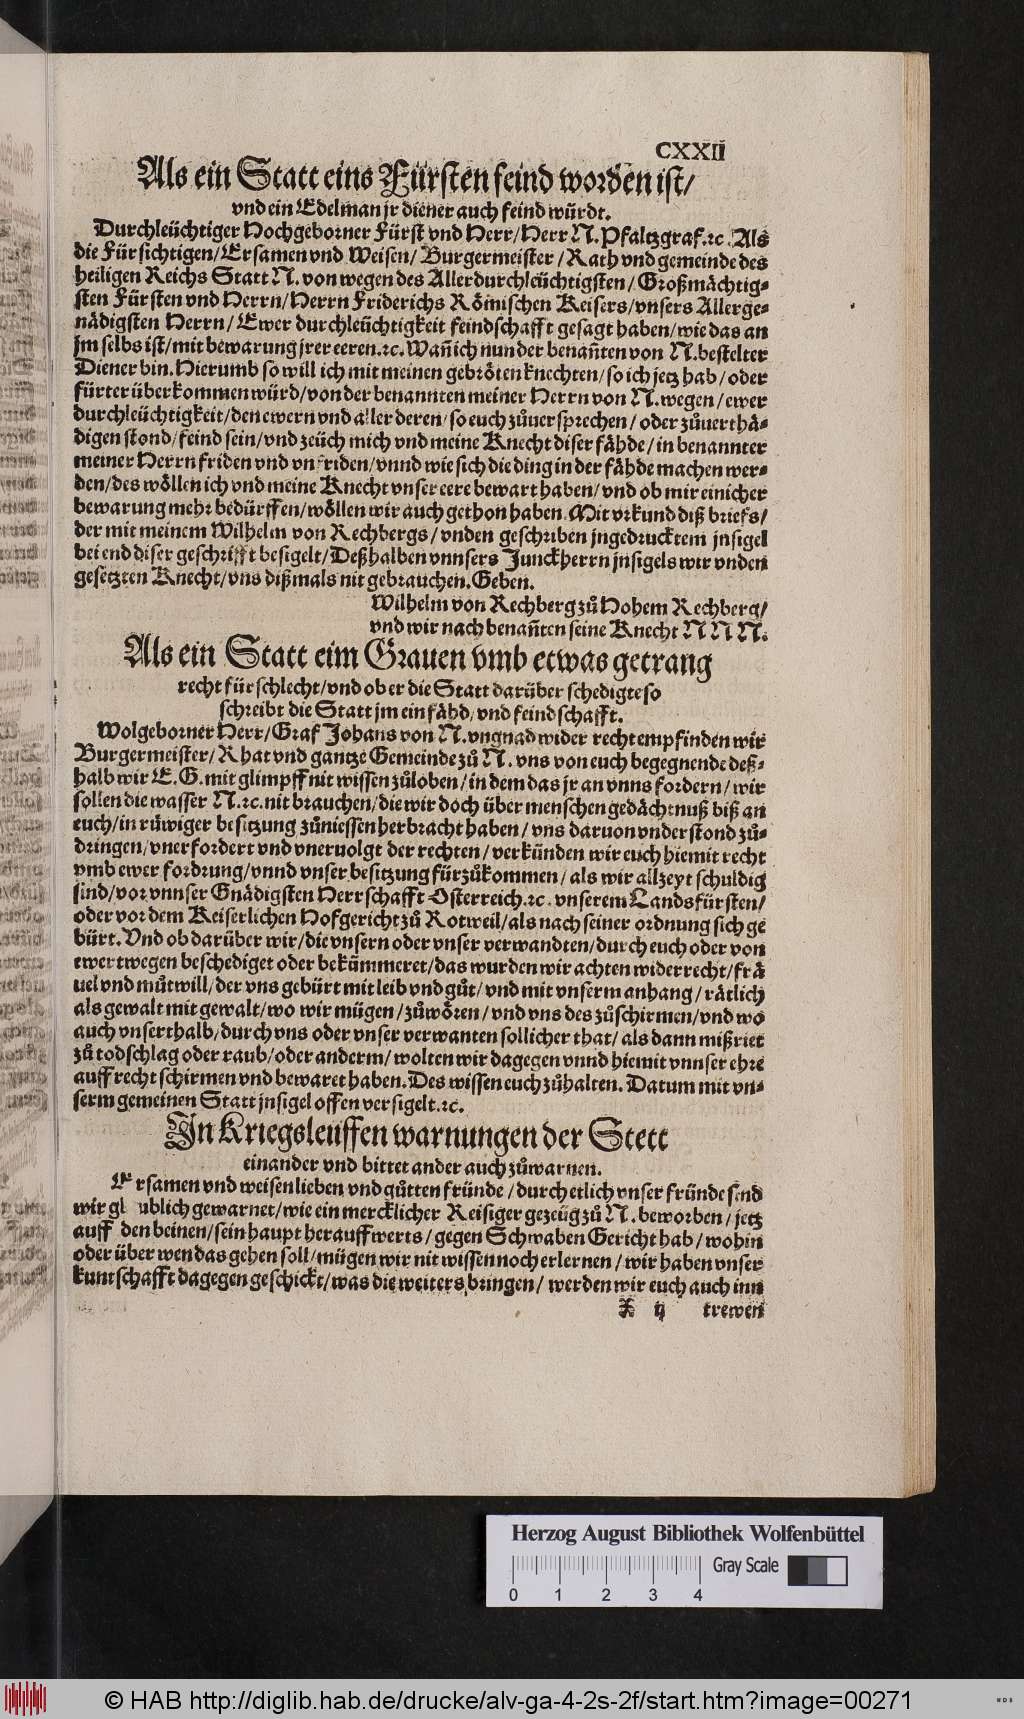 CXXII
Als ein Statt eins Fürsten feind worden ist/
vnd ein Edelman jr diener auch feind würdt.
Durchleüchtiger Hochgeborner Fürst vnd Herr/Herr N. Pfaltzgraf.ꝛc. Als
die Fürsichtigen/Ersamen vnd Weisen/Burgermeister/Rath vnd gemeinde des
heiligen Reichs Statt N. von wegen des Allerdurchleüchtigsten/Großmächtig⸗
sten Fürsten vnd Herrn/Herrn Friderichs Römischen Keisers/vnsers Allerge⸗
nädigsten Herrn/Ewer durchleüchtigkeit feindschafft gesagt haben/wie das an
jm selbs ist/mit bewarung jrer eeren.ꝛc. Wañ ich nun der benañten von N.bestelter
Diener bin. Hierumb so will ich mit meinen gebröten knechten/so ich jetz hab/oder
fürter überkommen würd/von der benannten meiner Herrn von N.wegen/ewer
durchleüchtigkeit/den ewern vnd aller deren/so euch zůuersprechen/oder zůuerthä⸗
digen stond/feind sein/vnd zeüch mich vnd meine Knecht diser fähde/in benannter
meiner Herrn friden vnd vnfriden/vnnd wie sich die ding in der fähde machen wer⸗
den/des wöllen ich vnd meine Knecht vnser eere bewart haben/vnd ob mir einicher
bewarung mehr bedürffen/wöllen wir auch gethon haben. Mit vrkund diß briefs/
der mit meinem Wilhelm von Rechbergs/vnden geschriben jngedrucktem jnsigel
bei end diser geschrifft besigelt/Deßhalben vnnsers Junckherrn jnsigels wir vnden
gesetzten Knecht/vns dißmals nit gebrauchen. Geben.
Wilhelm von Rechberg zů Hohem Rechberg/
vnd wir nach benañten seine Knecht N N N.
Als ein Statt eim Grauen vmb etwas getrang
recht für schlecht/vnd ob er die Statt darüber schedigte so
schreibt die Statt jm ein fähd/vnd feindschafft.
Wolgeborner Herr/Graf Johans von N. vngnad wider recht empfinden wir
Burgermeister/Rhat vnd gantze Gemeinde zů N. vns von euch begegnende deß⸗
halb wir E. G. mit glimpff nit wissen zůloben/in dem das jr an vnns fordern/wir
sollen die wasser N.ꝛc. nit brauchen/die wir doch über menschen gedächtnuß biß an
euch/in rüwiger besitzung zůniessen herbracht haben/vns daruon vnderstond zů⸗
dringen/vnerfordert vnd vneruolgt der rechten/verkünden wir euch hiemit recht
vmb ewer fordrung/vnnd vnser besitzung fürzůkommen/als wir allzeyt schuldig
sind/vor vnnser Gnädigsten Herrschafft Osterreich.ꝛc. vnserem Landsfürsten/
oder vor dem Keiserlichen Hofgericht zů Rotweil/als nach seiner ordnung sich ge
bürt. Vnd ob darüber wir/die vnsern oder vnser verwandten/durch euch oder von
ewertwegen beschediget oder bekümmeret/das wurden wir achten widerrecht/frä
uel vnd můtwill/der vns gebürt mit leib vnd gůt/vnd mit vnserm anhang/rätlich
als gewalt mit gewalt/wo wir mügen/zůwören/vnd vns des zůschirmen/vnd wo
auch vnserthalb/durch vns oder vnser verwanten sollicher that/als dann mißriet
zů todschlag oder raub/oder anderm/wolten wir dagegen vnnd hiemit vnnser ehre
auffrecht schirmen vnd bewaret haben. Des wissen euch zůhalten. Datum mit vn⸗
serm gemeinen Statt jnsigel offen versigelt.ꝛc.
In Kriegsleuffen warnungen der Stett
einander vnd bittet ander auch zůwarnen.
Ersamen vnd weisen lieben vnd gůtten fründe/durch etlich vnser fründe send
wir gl ublich gewarnet/wie ein mercklicher Reisiger gezeüg zů N. beworben/jetz
auff den beinen/sein haupt herauffwerts/gegen Schwaben Gericht hab/wohin
oder über wen das gehen soll/mügen wir nit wissen noch erlernen/wir haben vnser
kuntschafft dagegen geschickt/was die weiters bringen/werden wir euch auch inn
X ij trewen
Herzog August Bibliothek Wolfenbüttel
Gray Scale
0 1 2 3 4
© HAB http://diglib.hab.de/drucke/alv-ga-4-2s-2f/start.htm?image=00271